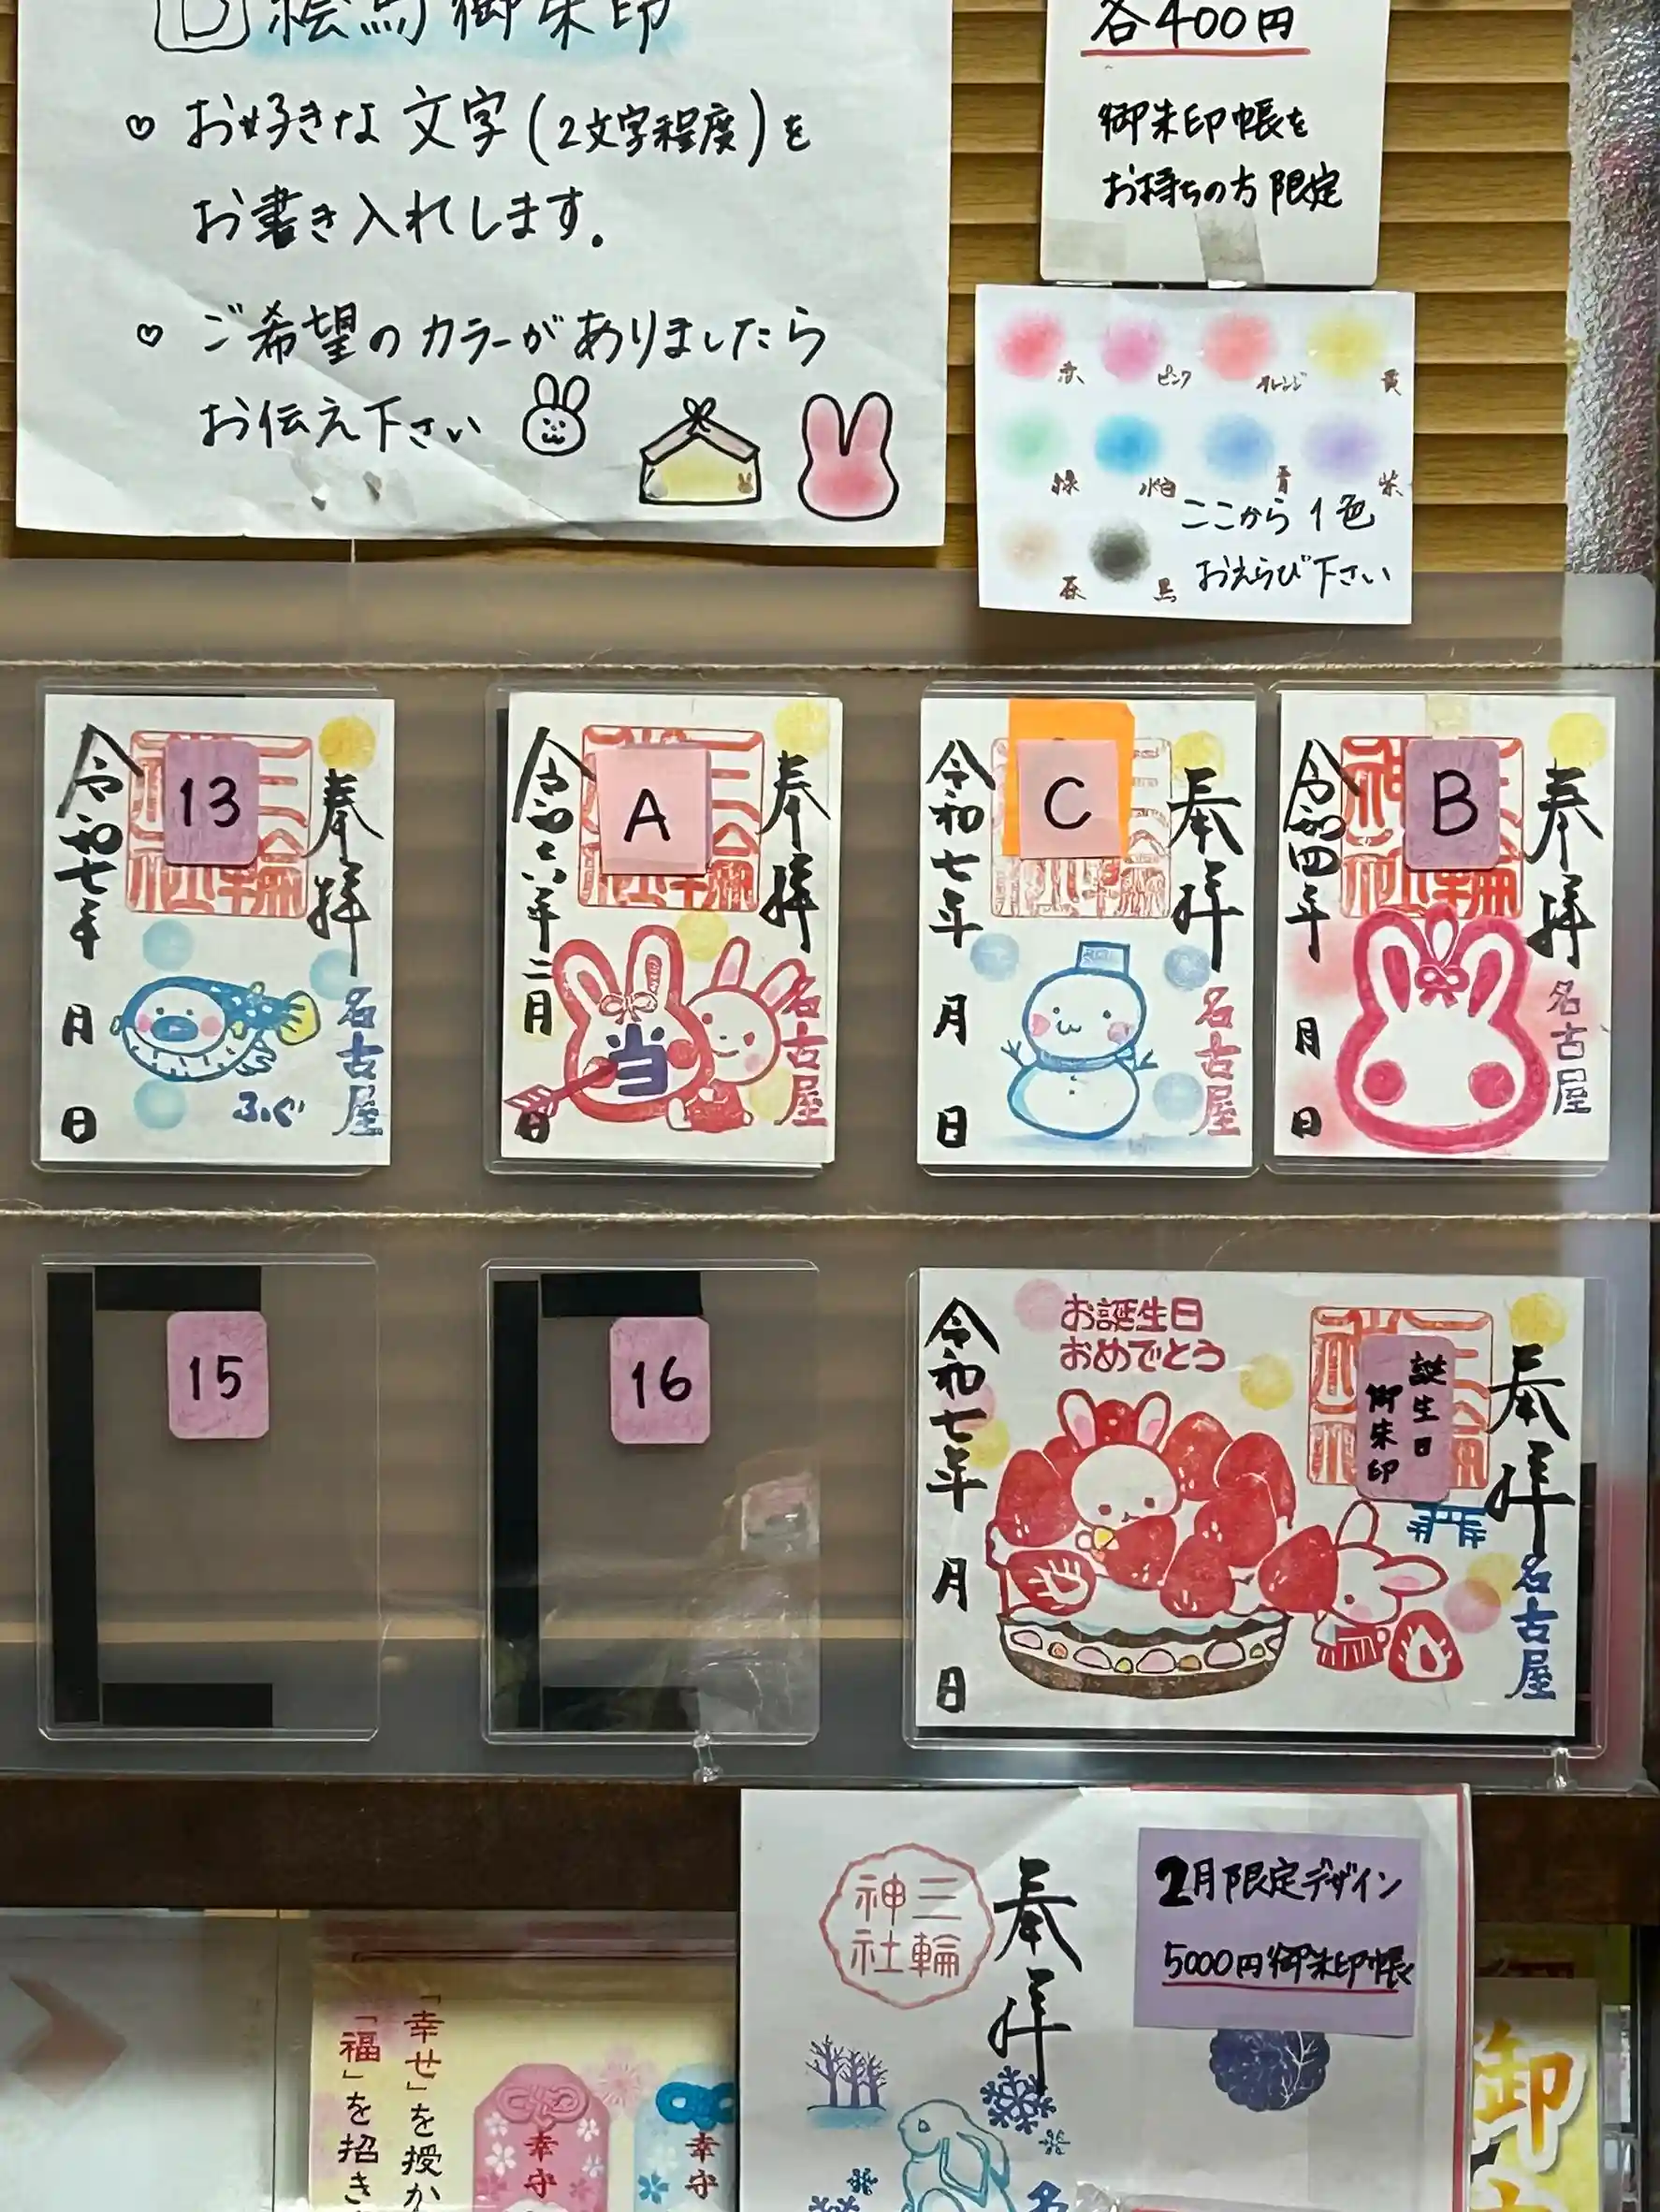 B 絵馬御朱印
♡ お好きな文字(2文字程度)を
お書き入れします。
♡ ご希望のカラーがありましたら
お伝え下さい
各400円
御朱印帳を
お持ちの方限定
赤 ピンク オレンジ 黄
緑 水色 青 紫
茶 黒
ここから1色
おえらび下さい
13
奉拝
名古屋
ふぐ
令和七年 月 日
A
奉拝
名古屋
当
令和六年二月 日
C
奉拝
名古屋
令和七年 月 日
B
奉拝
名古屋
令和四年 月 日
15
16
お誕生日
おめでとう
誕生日
御朱印
奉拝
名古屋
令和七年 月 日
2月限定デザイン
5000円御朱印帳
奉拝
三輪
神社
「幸せ」を授か
「福」を招き
幸守
幸守
御